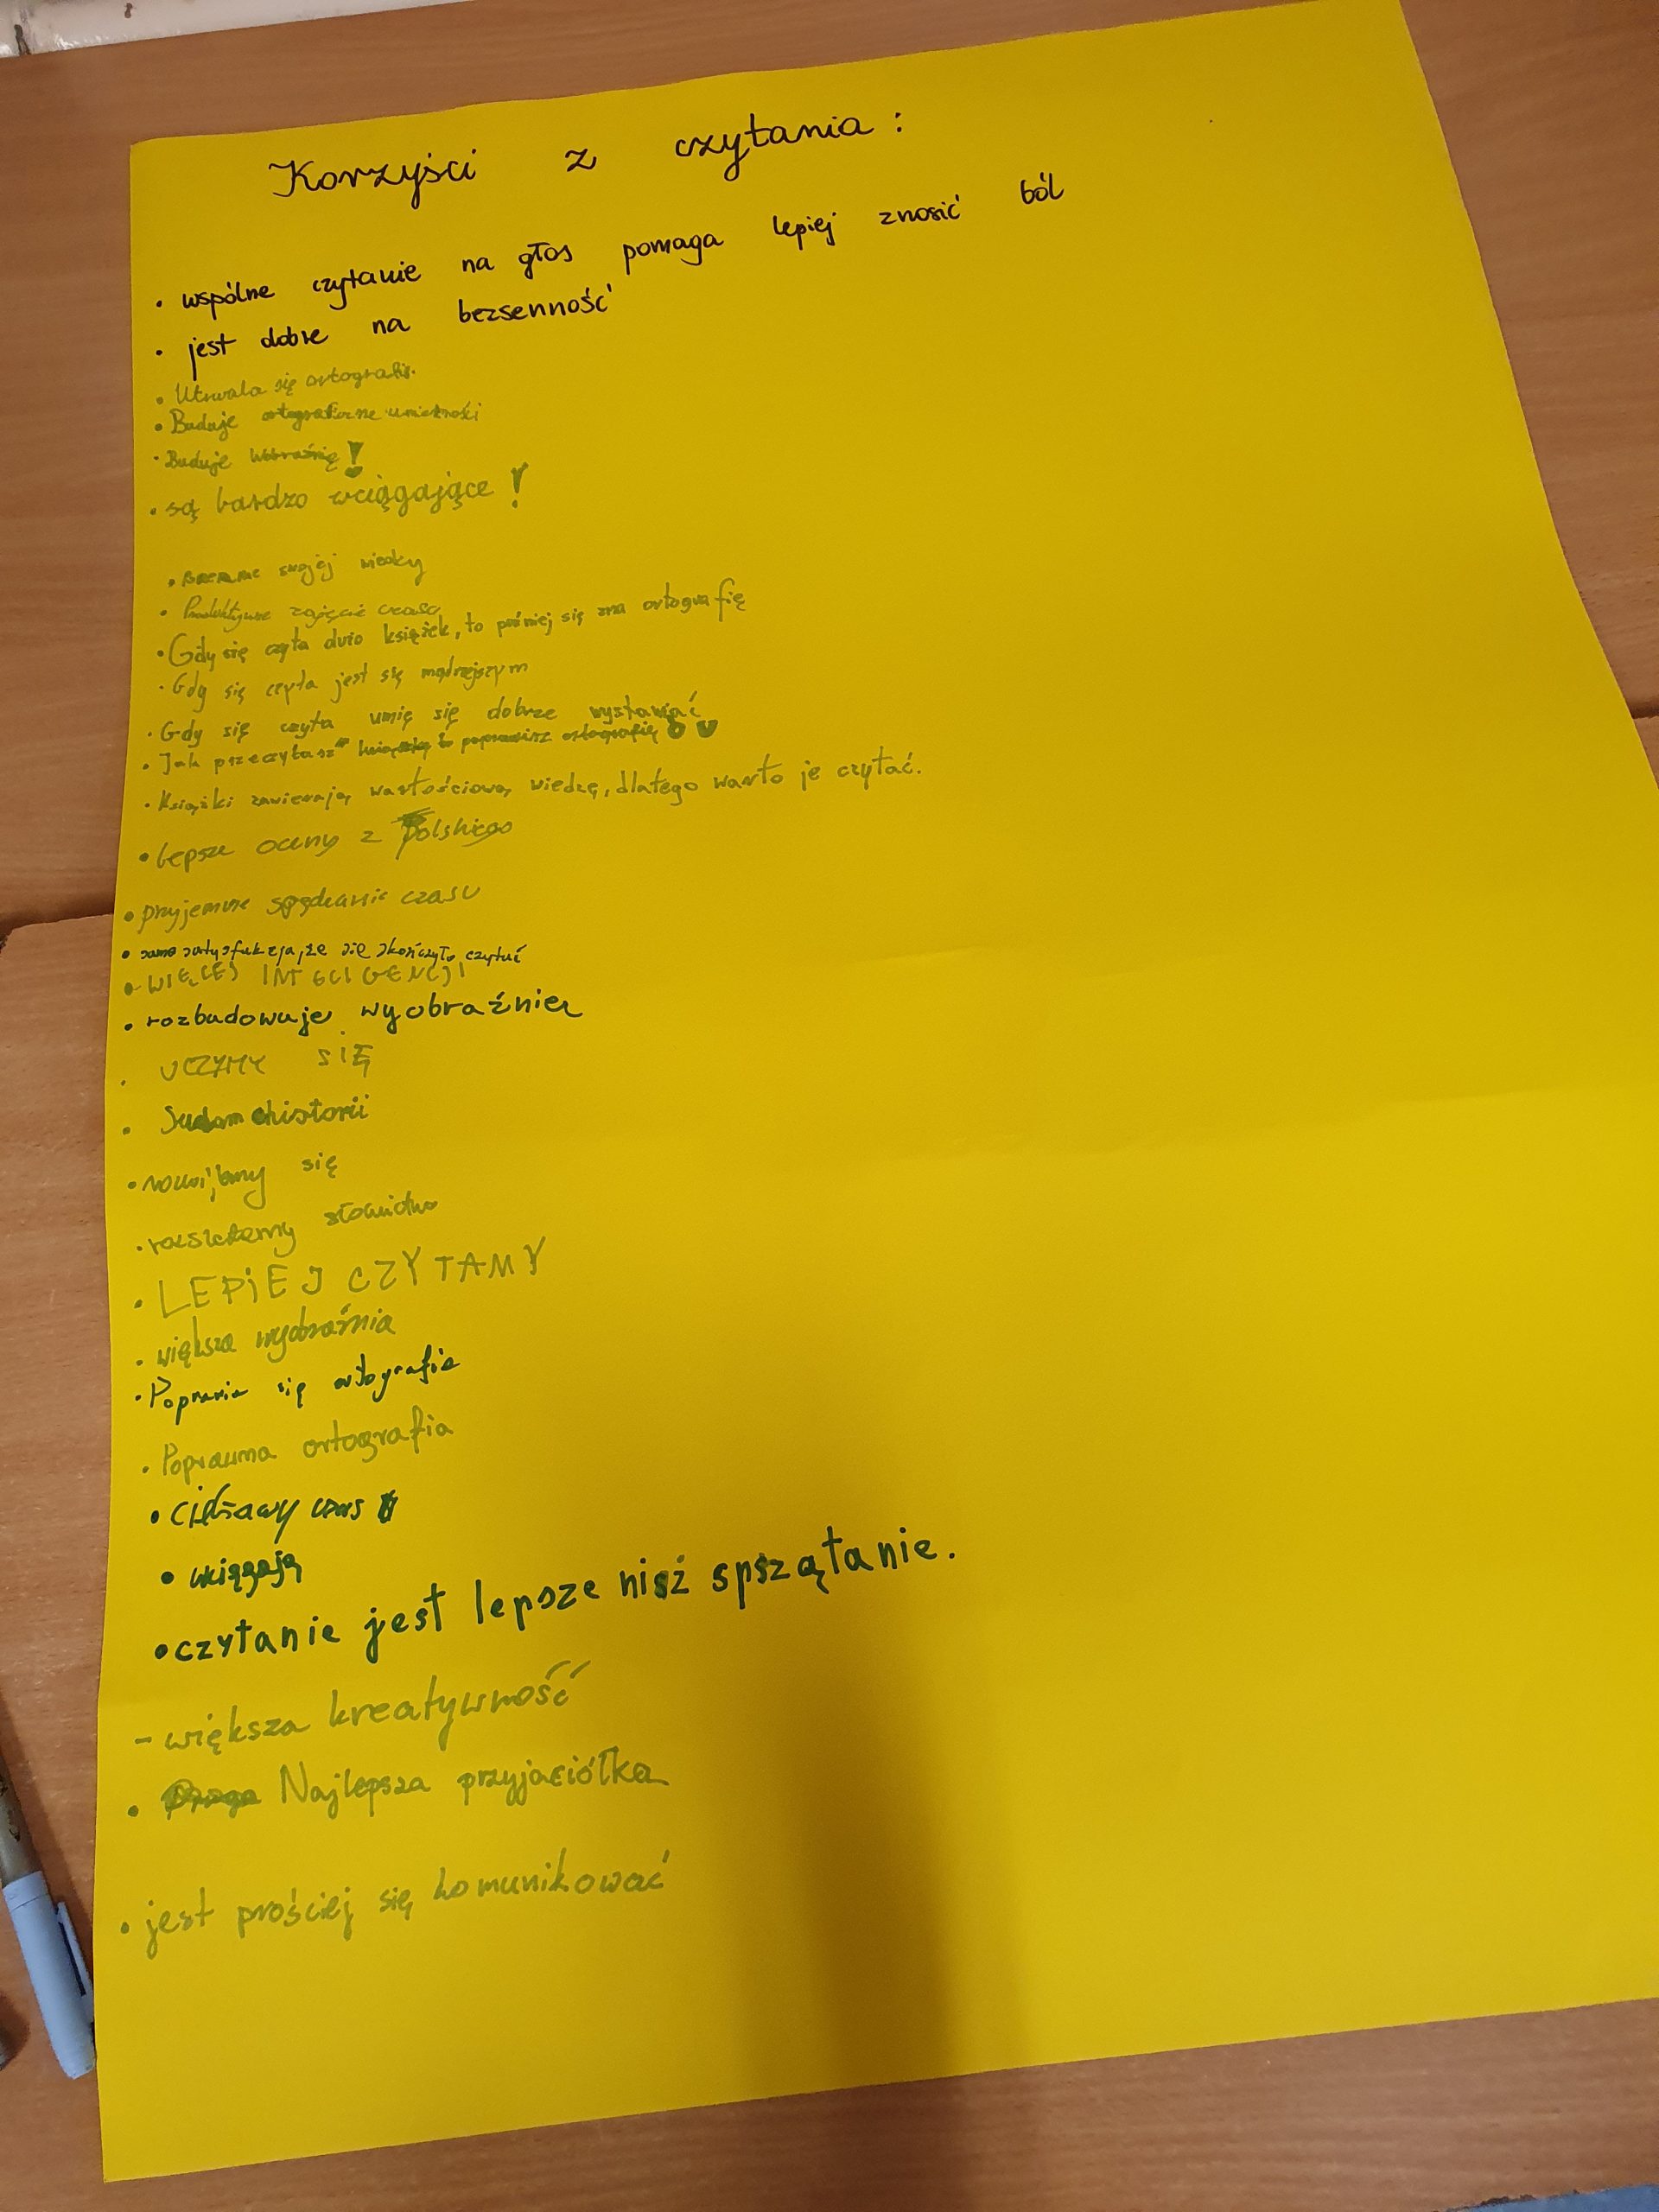 Korzyści z czytania:
• wspólne czytanie na głos pomaga lepiej znosić ból
• jest dobre na bezsenność
• Utrwala się ortografię.
• Buduje ortograficzne umiejętności
• Buduje !
• są bardzo wciągające !
• swojej wiedzy
• Produktywne zajęcie czasu
• Gdy się czyta dużo książek, to później się zna ortografię
• Gdy się czyta jest się mądrzejszym
• Gdy się czyta umię się dobrze wysławiać
• Jak przeczytasz książkę to poprawisz ortografię
• Książki zawierają wartościową wiedzę, dlatego warto je czytać.
• lepsze oceny z Polskiego
• przyjemne spędzanie czasu
• samo satysfakcja, że się skończyło czytać
• WIĘCEJ INTELIGENCJI
• rozbudowuje wyobraźnie
• UCZYMY SIĘ
• historii
• rozwijamy się
• słownictwo
• LEPIEJ CZYTAMY
• większa wyobraźnia
• Poprawia się ortografia
• Poprawna ortografia
• czas
• wciągają
• czytanie jest lepsze niż spszątanie.
- większa kreatywność
• Najlepsza przyjaciółka
• jest prościej się komunikować